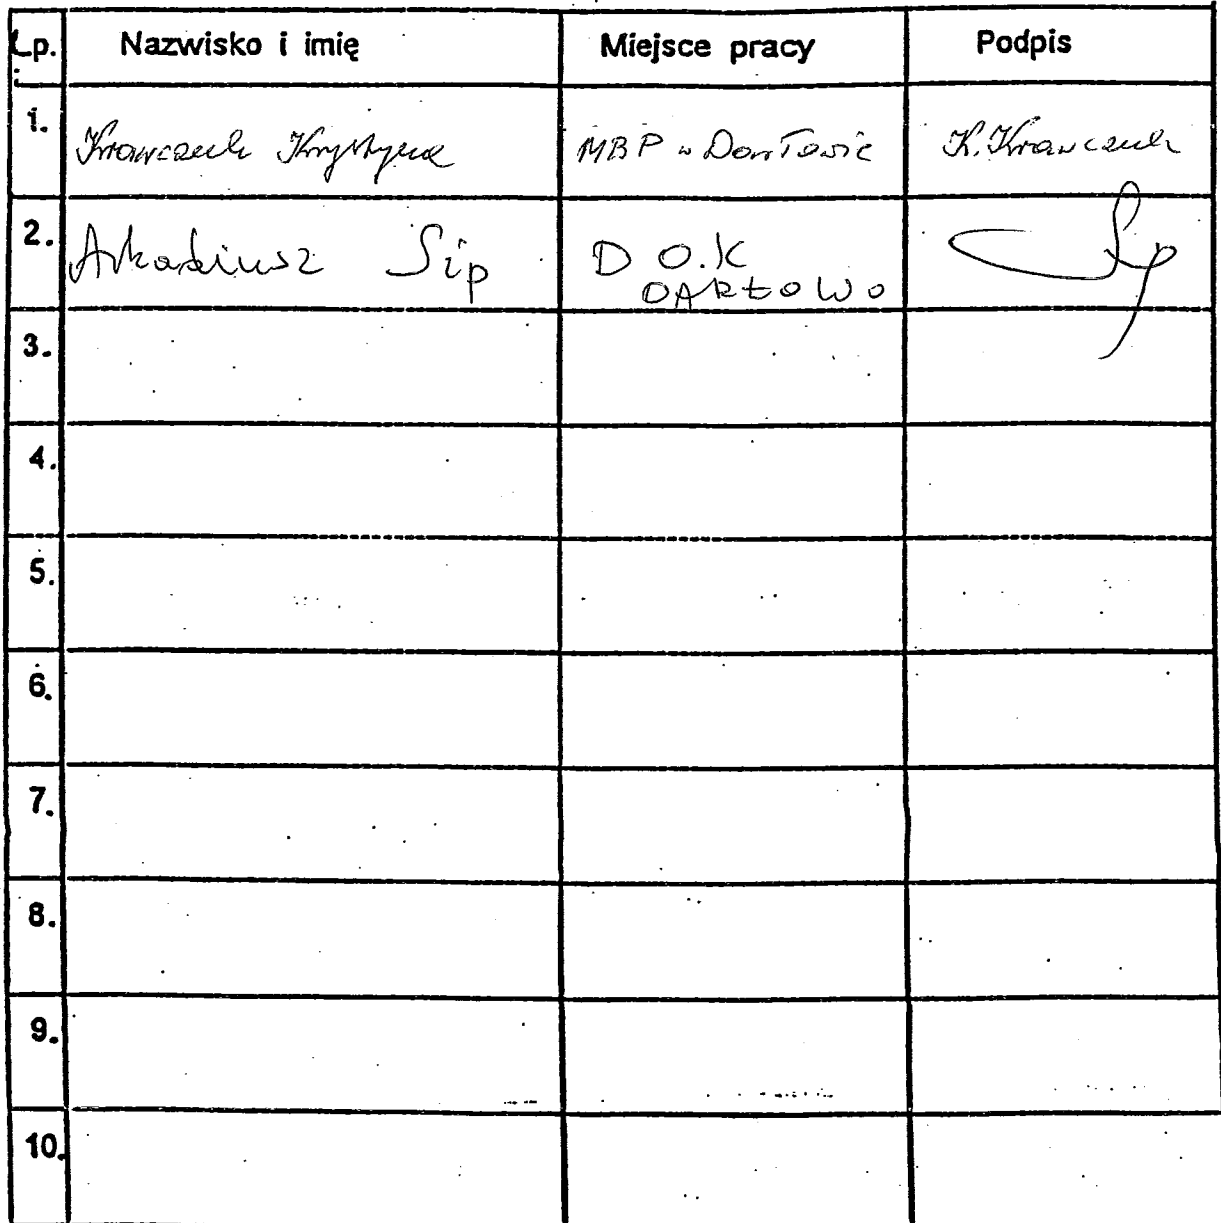 Lp. Nazwisko i imię Miejsce pracy Podpis
1. Krawczuk Krystyna MBP w Darłowie K. Krawczuk
2. Arkadiusz Sip D O.K
DARŁOWO
3.
4.
5.
6.
7.
8.
9.
10.